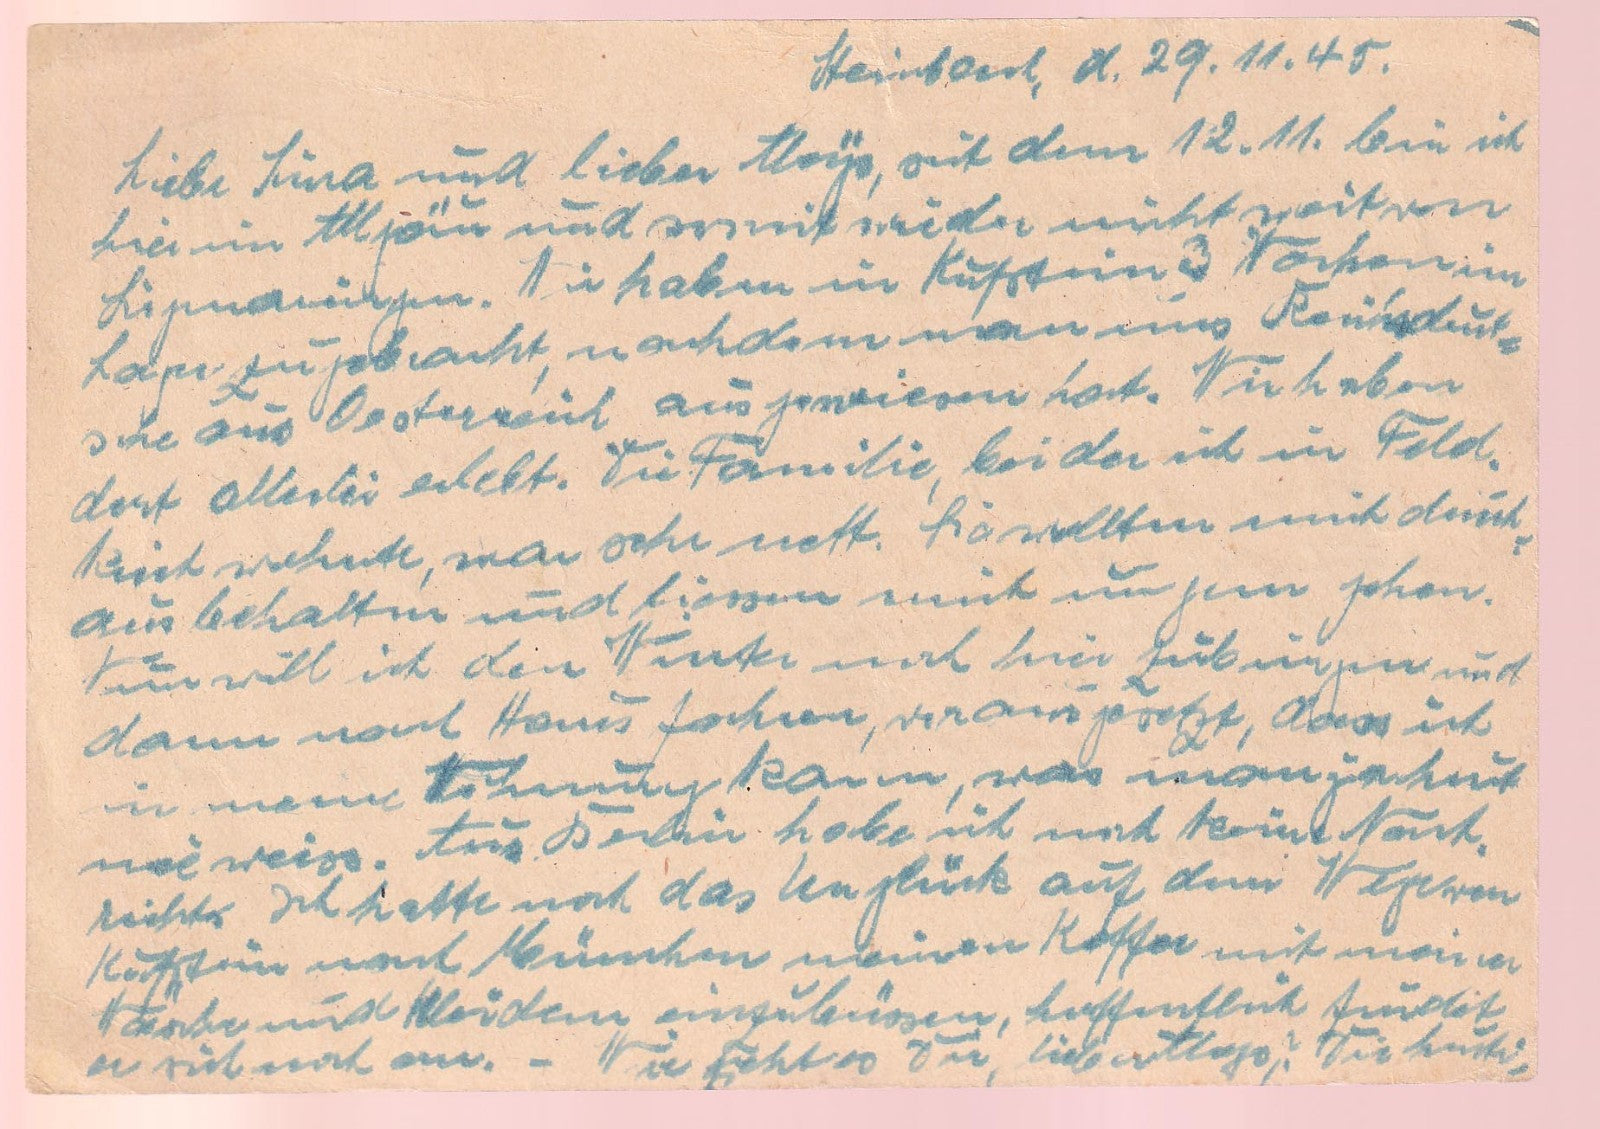 Steinbach, d. 29.11.45.
Liebe Lina und lieber Aloys, seit dem 12.11. bin ich
hier im Allgäu und somit wieder nicht weit von
Sigmaringen. Wir haben in Kufstein 3 Wochen im
Lager zugebracht, nachdem man uns Reichsdeut-
sche aus Oesterreich ausgewiesen hat. Wir haben
dort allerlei erlebt. Die Familie, bei der ich in Feld-
kirch wohnte, war sehr nett. Sie wollten mich durch-
aus behalten und liessen mich ungern gehen.
Nun will ich den Winter noch hier zubringen und
dann nach Haus fahren, vorausgesetzt, dass ich
in meine Wohnung kann, was man ja heut
nie weiss. Aus Berlin habe ich noch keine Nach-
richt. Ich hatte noch das Unglück auf dem Wege von
Kufstein nach München meinen Koffer mit meiner
Wäsche und Kleidern einzubüssen, hoffentlich findet
er sich noch an. – Wie geht es Dir, lieber Aloys? Die